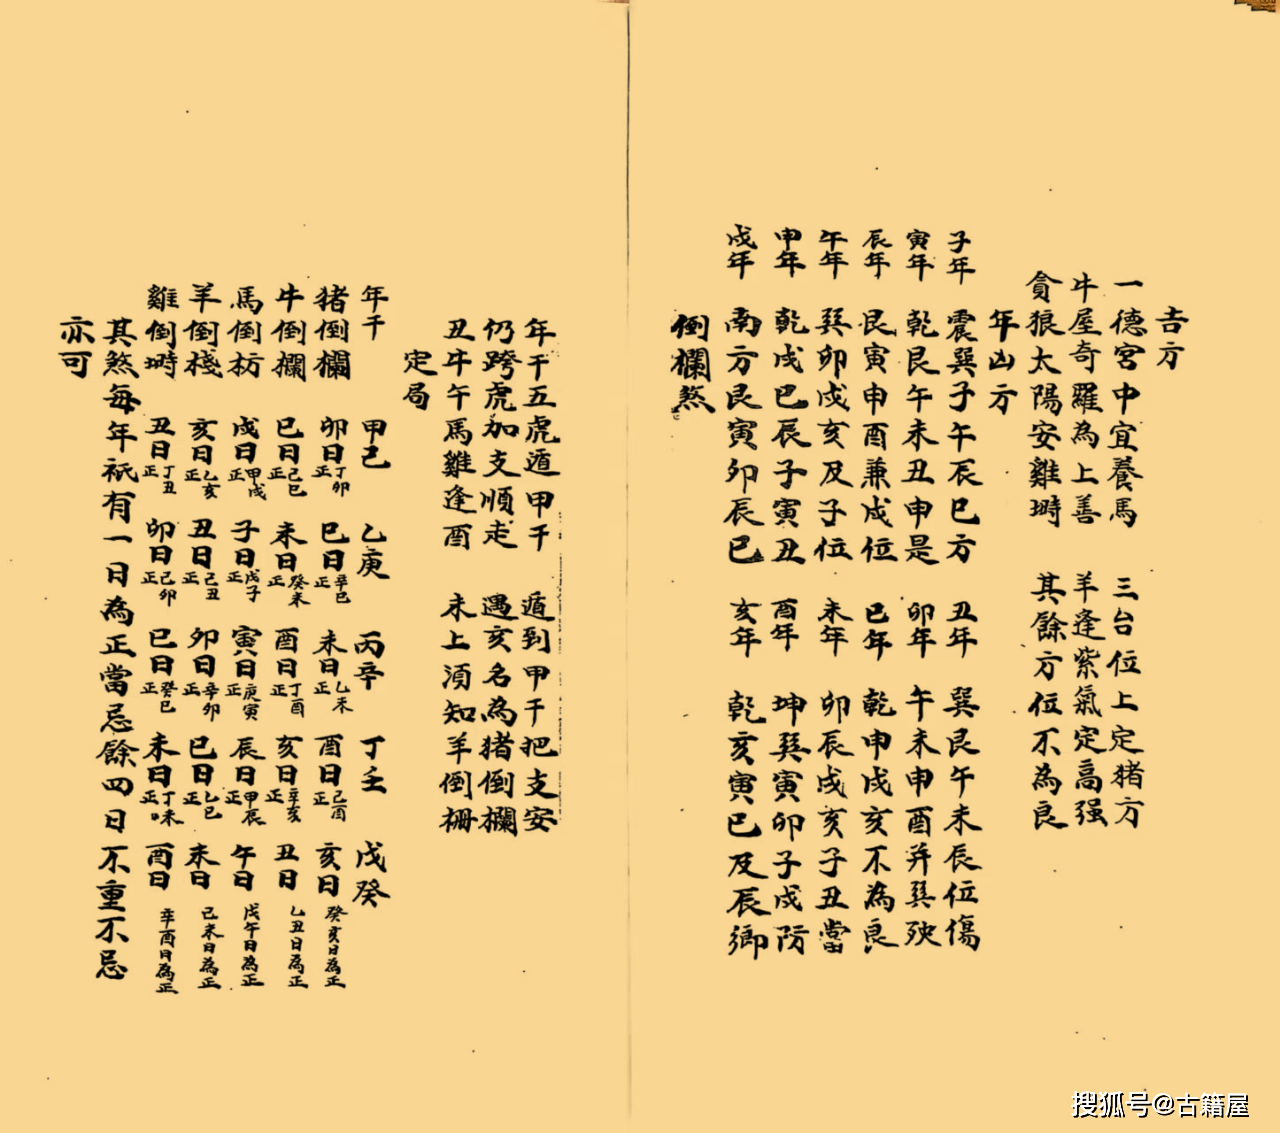 吉方
一德宮中宜養馬 三台位上定猪方
牛屋奇羅為上善 羊逢紫氣定高强
貪狼太陽安雞塒 其餘方位不為良
年凶方
子年 震巽子午辰巳方 丑年 巽艮午未辰位傷
寅年 乾艮午未丑申是 卯年 午未申酉并巽殃
辰年 艮寅申酉兼戌位 巳年 乾申戌亥不為良
午年 巽卯戌亥及子位 未年 卯辰戌亥子丑當
申年 乾戌巳辰子寅丑 酉年 坤巽寅卯子戌防
戌年 南方艮寅卯辰巳 亥年 乾亥寅巳及辰鄉
倒欄煞
年干五虎遁甲干 遁到甲干把支安
仍跨虎加支順走 遇亥名為猪倒欄
丑牛午馬雞逢酉 未上須知羊倒柵
定局
年干 甲己 乙庚 丙辛 丁壬 戊癸
猪倒欄 卯日丁卯正 巳日辛巳正 未日乙未正 酉日己酉正 亥日癸亥日為正
牛倒欄 巳日己巳正 未日癸未正 酉日丁酉正 亥日辛亥正 丑日乙丑日為正
馬倒枋 戌日甲戌正 子日戊子正 寅日庚寅正 辰日甲辰正 午日戊午日為正
羊倒棧 亥日乙亥正 丑日己丑正 卯日辛卯正 巳日乙巳正 未日己未日為正
雞倒塒 丑日丁丑正 卯日己卯正 巳日癸巳正 未日丁未正 酉日辛酉日為正
其煞每年祇有一日為正當忌餘四日不重不忌
亦可
搜狐号@古籍屋